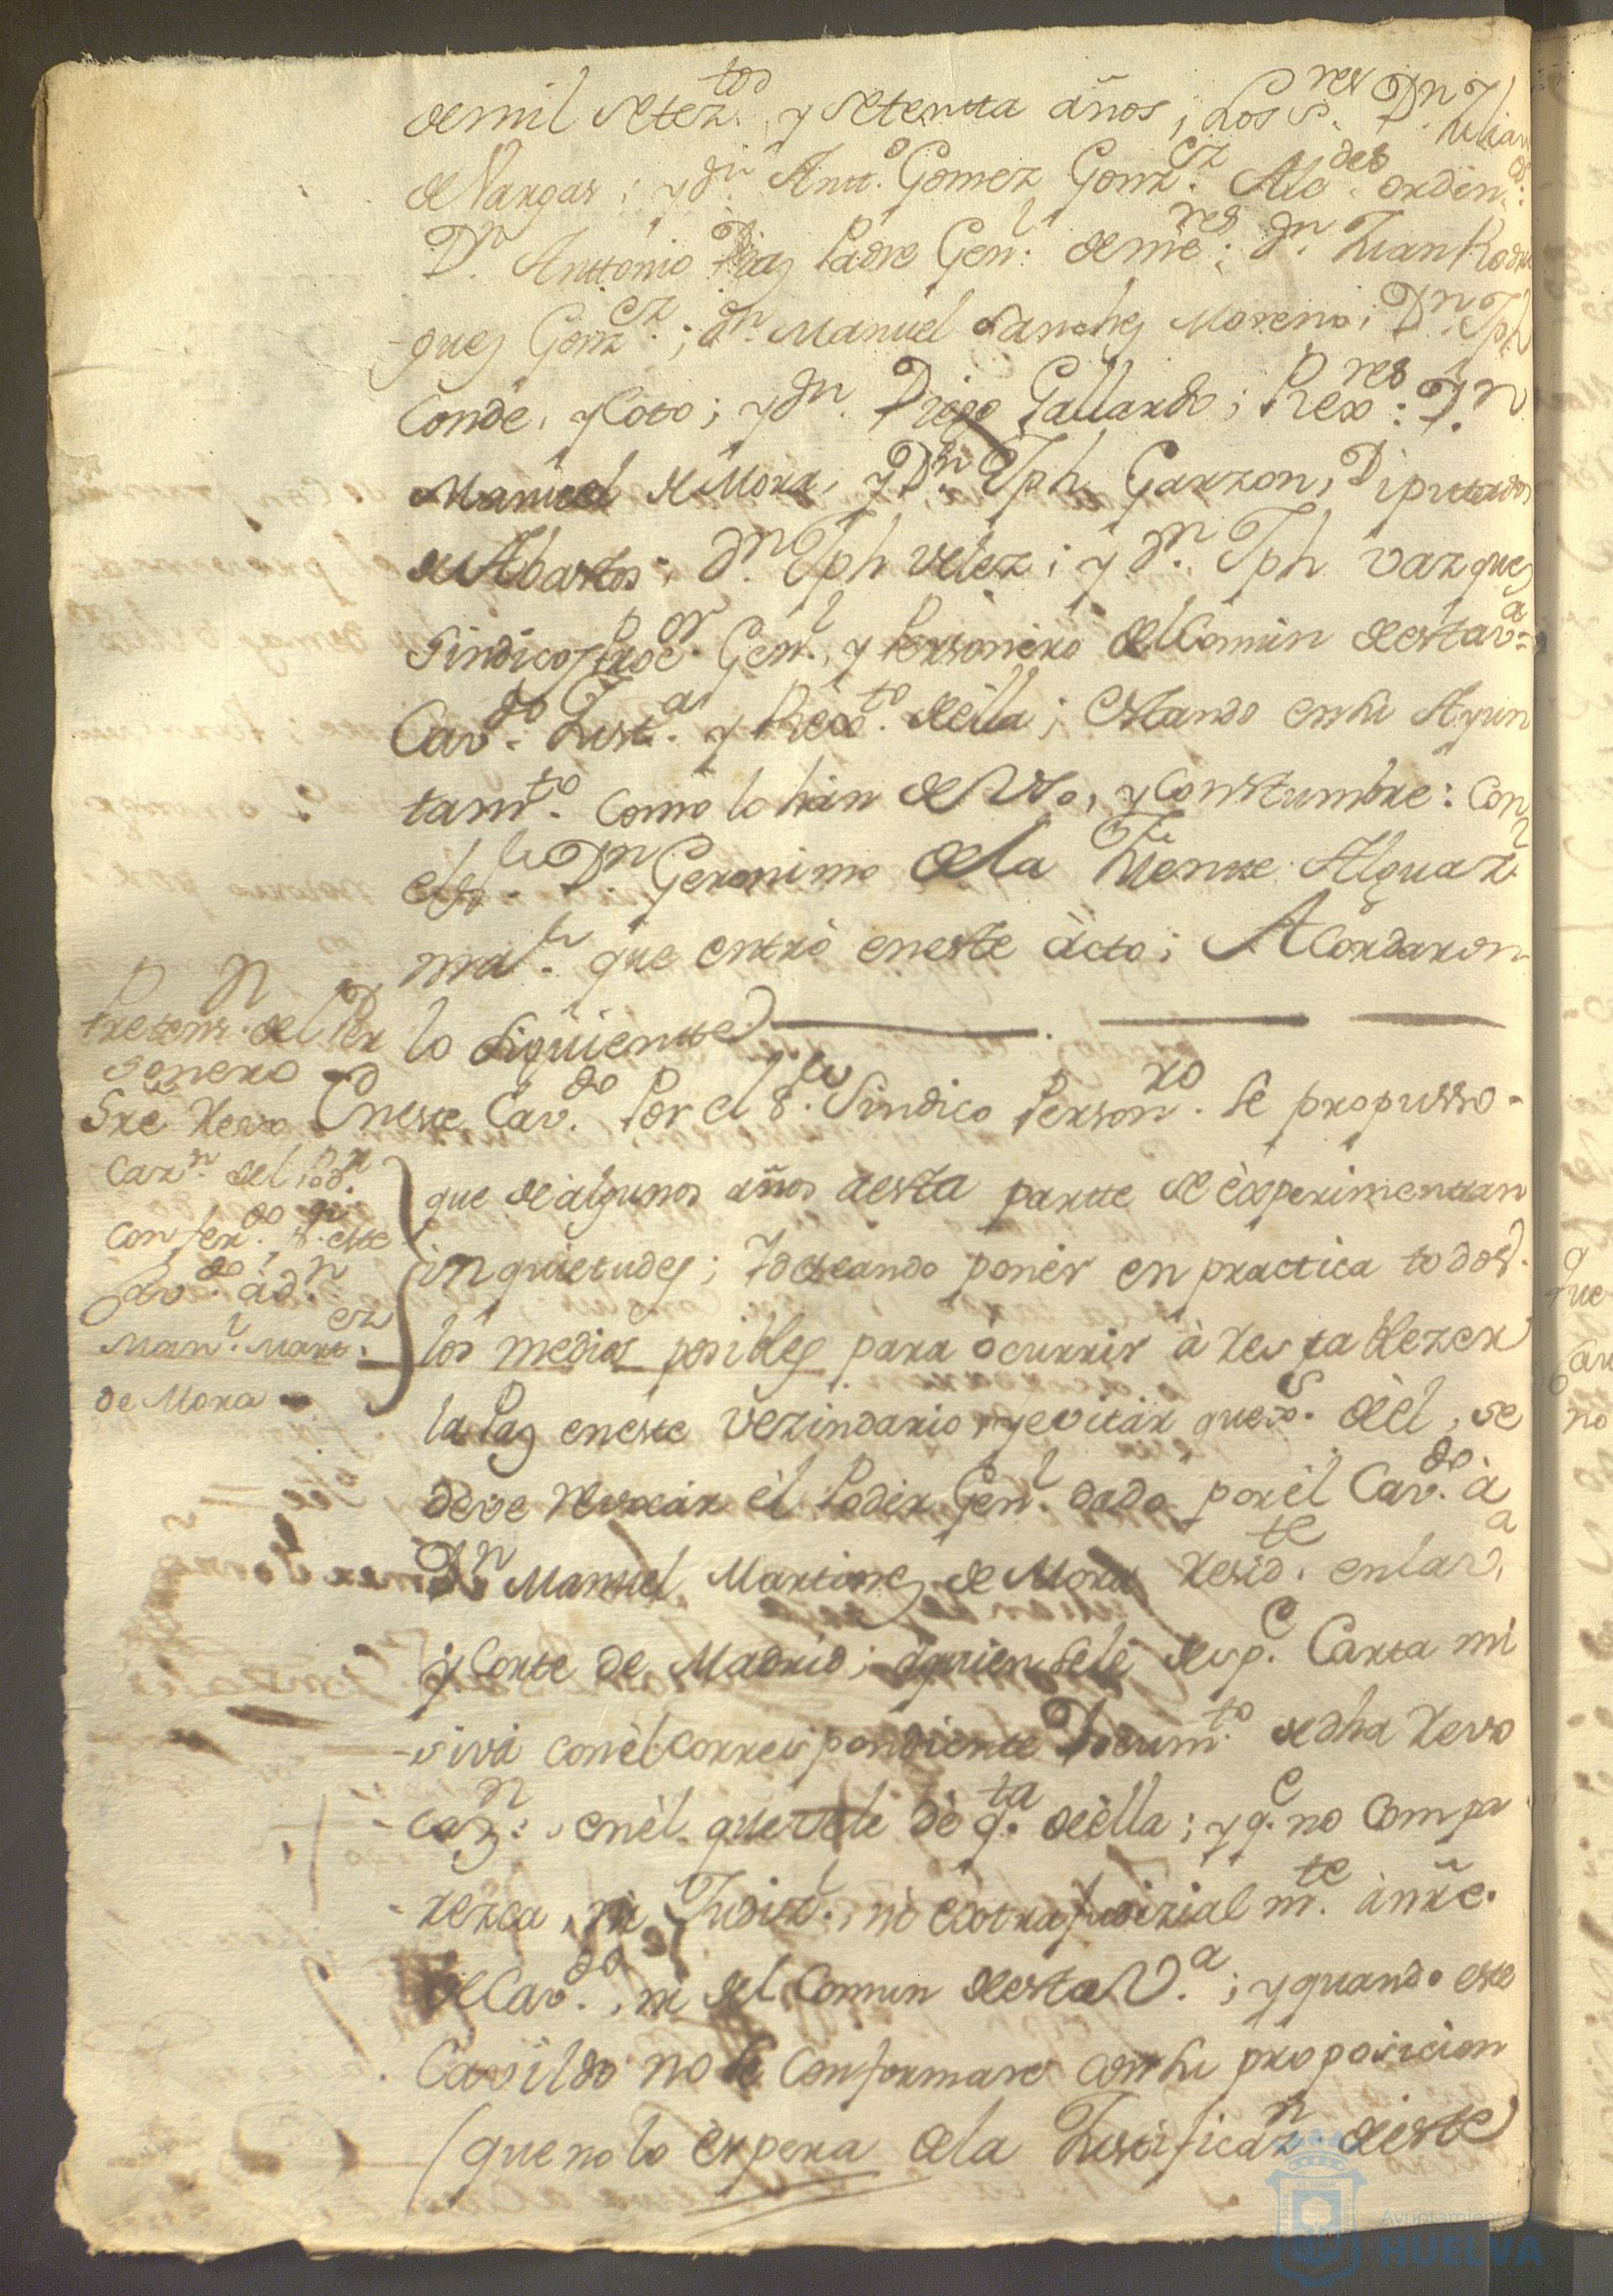 de mil setez.tos y setenta años; Los S.res D.n Julian
de Vargas; y d.n Antt.o Gomez Gonz.ez Alc.des ordin.os
D.n Anttonio Diaz Padre Gen.l de me.res; d.n Juan Rodri
-guez Gonz.ez; d.n Manuel Sanchez Moreno; D.n Jph
Conde, y Coto; y d.n Diego Gallardo; Rex.res D.n
Manuel de Mora, y D.n Jph Garzon, Diputados
de Abastos; d.n Jph Velez; y d.n Jph Vazquez
Sindico Proc.or Gen.l, y Personero del Comun de esta V.a
Cav.do Just.a y Rex.to de ella; Estando en su Ayun
tam.to como lo han de Uso, y Constumbre: Con
el S.r D.n Geronimo de la Fuente Alguaz.l
ma.r que entró en este acto; Acordaron
lo siguientte
Pretens.n del Per
sonero
Sre Revo
caz.n del Pod.r
confer.do p.r este
Cav.do a d.n
Man.l Mart.ez
de Mora
En este Cav.do Por el S.r Sindico Person.ro se propusso
que de algunos años a esta partte se experimentan
inquietudes; Y deseando poner en practica todos
los medios posibles para ocurrir à restablezer
la Paz en este Vezindario, y evitar quexs. de èl, se
deve revocar èl Poder Gen.l dado por èl Cav.do à
D.n Manuel Martinez de Mora resid.te en la V.a
y Corte de Madrid; àquien sele desp.e Carta mi
-siva con èl correspondiente Docum.to de dha revo
caz.n en èl que sele dè q.ta de èlla; y q.e no compa
-rezca, ni Judiz.l, ni extrajudizialm.te à nre.
de Cav.do, ni del Comun de esta V.a; y quando este
Cavildo no se conformare con su proposicion
(que no lo espera de la Justificaz.n de este
Ayuntamiento
HUELVA